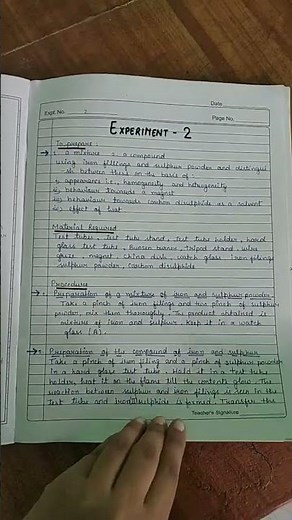 Date
Expt. No. 2
Page No.
EXPERIMENT - 2
To prepare :
→ 1. a mixture 2. a compound
using iron fillings and sulphur powder and distingui
sh between these on the basis of :
i) appearance i.e., homogeneity and heterogeneity
ii) behaviour towards a magnet
iii) behaviour towards carbon disulphide as a solvent
iv) effect of heat
Material Required
Test tubes, test tube stand, test tube holder, hard
glass test tube, Bunsen burner, tripod stand, wire
gauze, magnet, china dish, watch glass, iron filings
sulphur powder, carbon disulphide
Procedure
→ 1. Preparation of a mixture of iron and sulphur powder
Take a pinch of iron filings and two pinch of sulphur
powder, mix them thoroughly. The product obtained is
mixture of iron and sulphur. Keep it in a watch
glass (A).
→ 2. Preparation of the compound of iron and sulphur
Take a pinch of iron filing and a pinch of sulphur powder
In a hard glass test tube. Hold it in a test tube
holder, heat it on the flame till the contents glow. The
reaction between sulphur and iron filings is seen in the
test tube and iron(II)sulphide is formed. Transfer this
Teacher's Signature